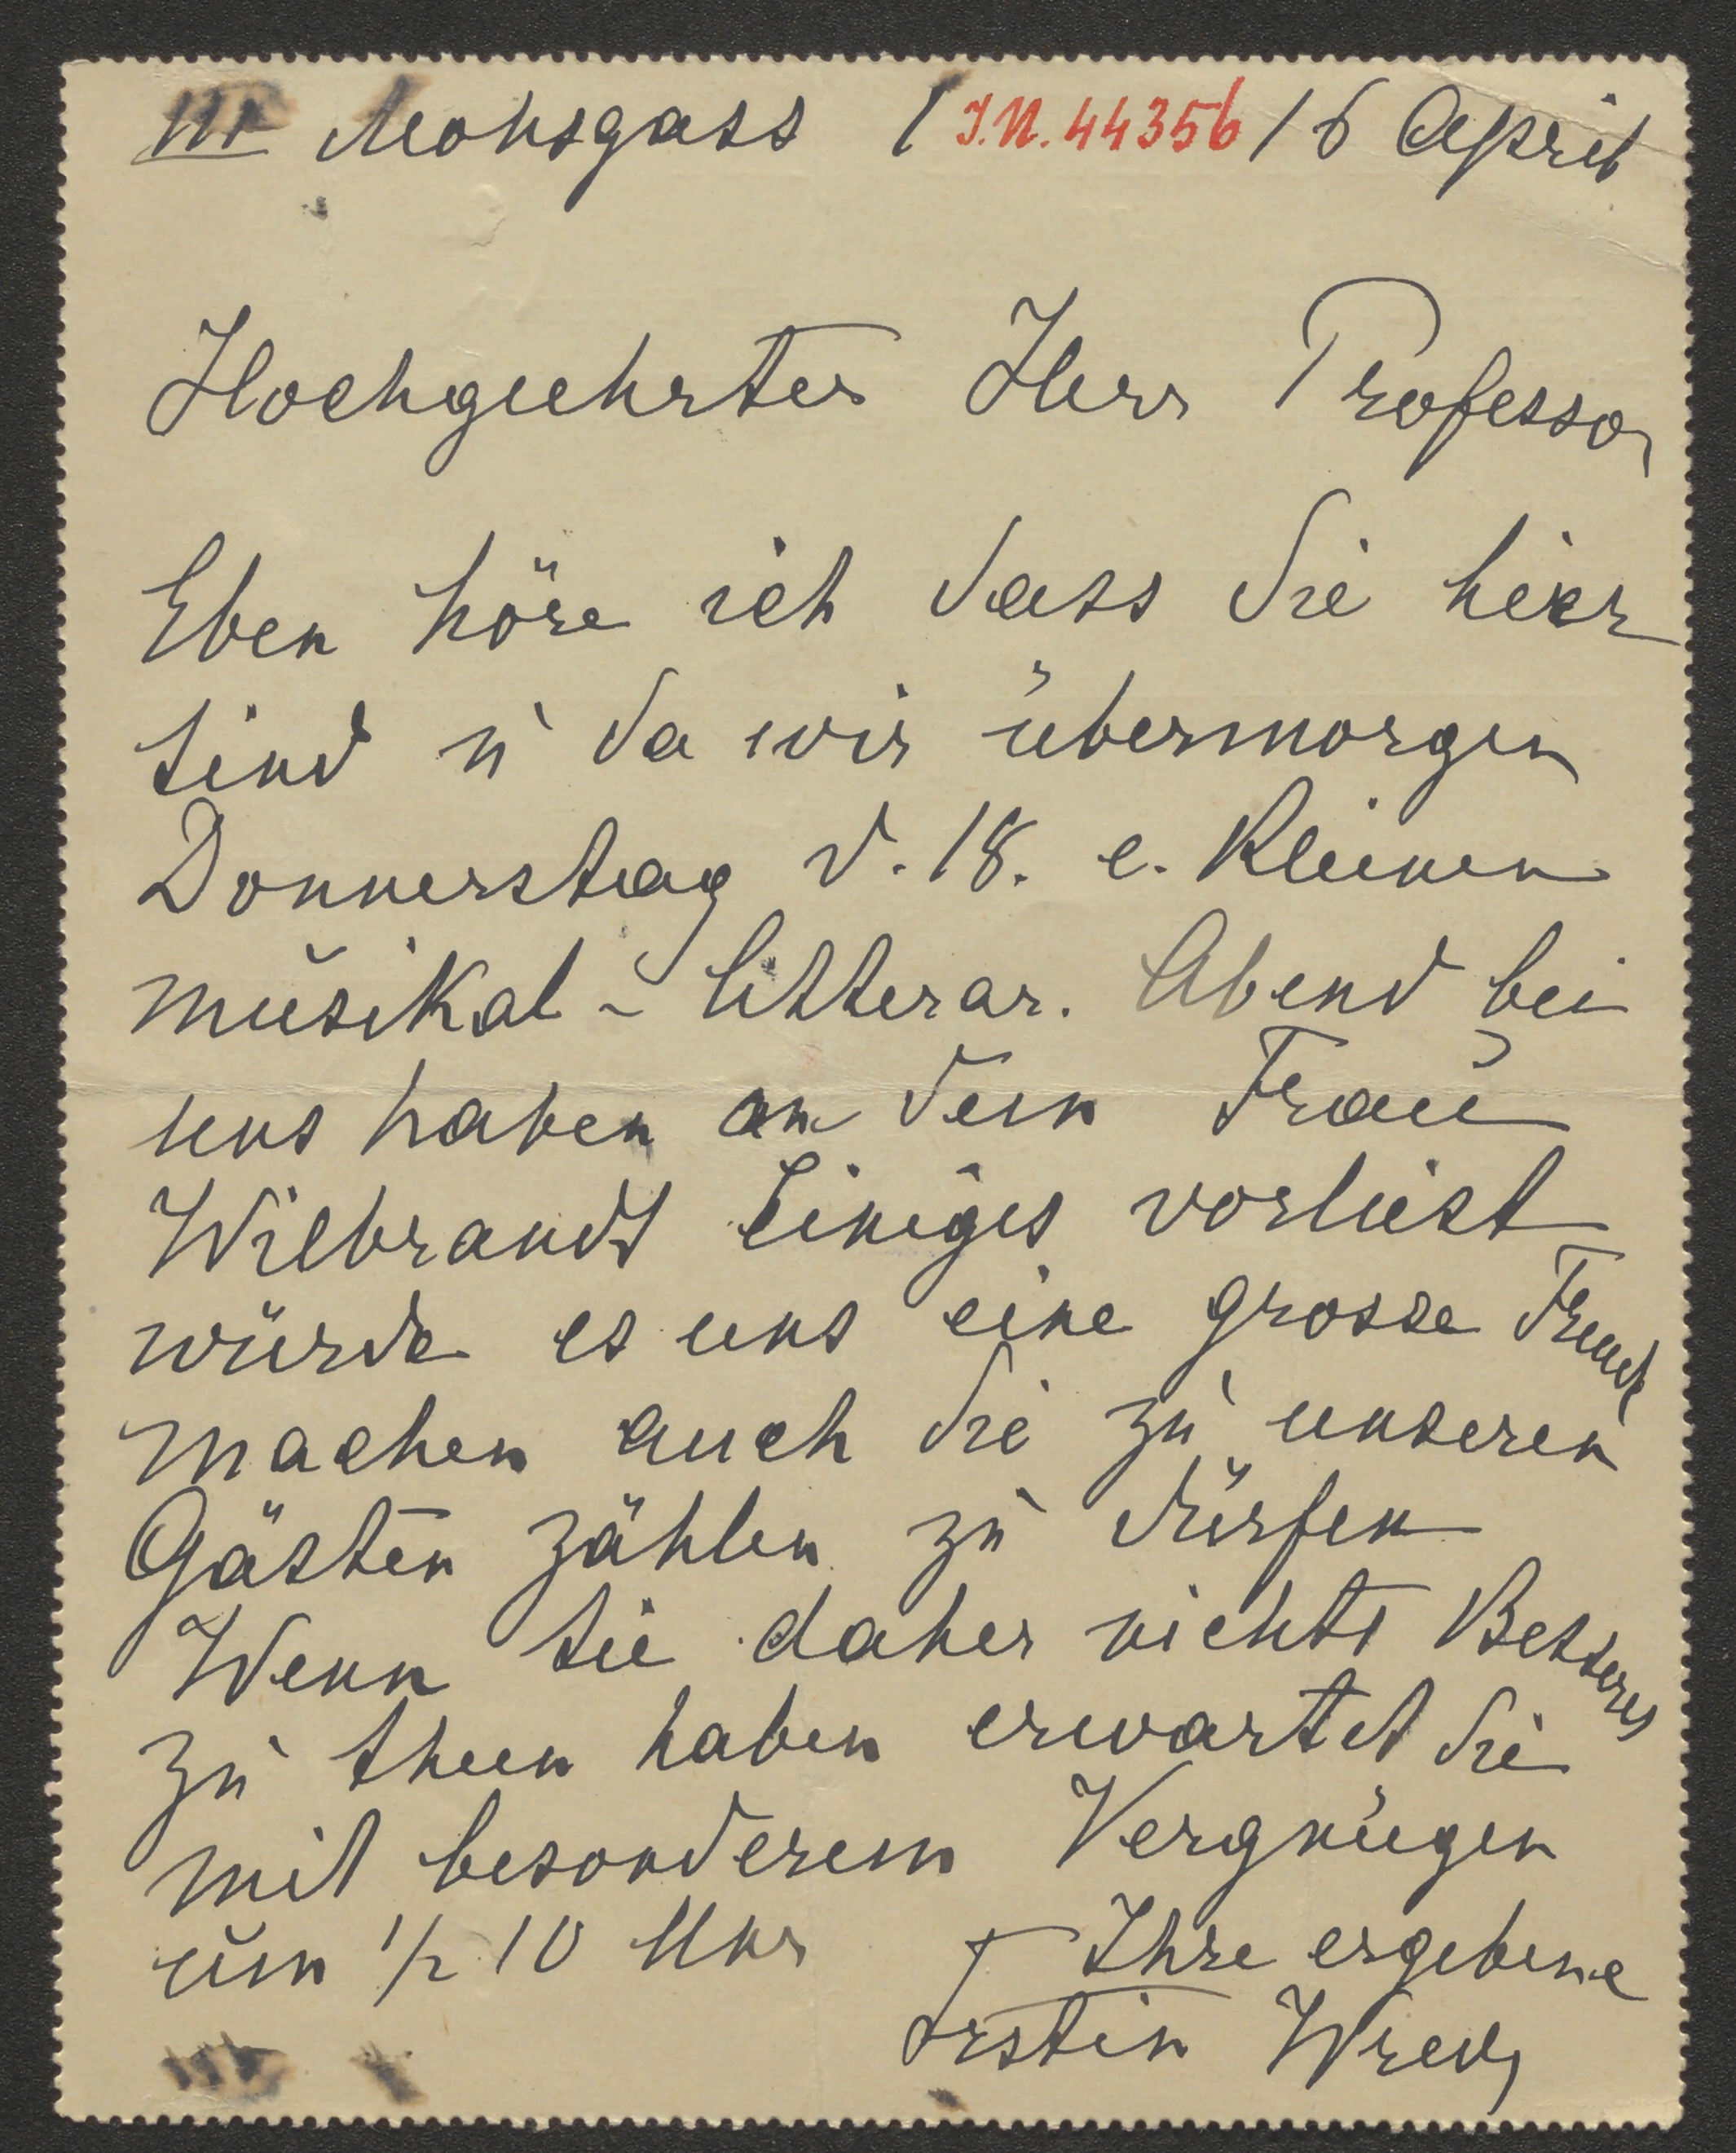 III Mohsgass 1 J.N. 44356 16 April
Hochgeehrter Herr Professor
Eben höre ich dass Sie hier
sind u da wir übermorgen
Donnerstag d. 18. e. Kleinen
musikal - litterar. Abend bei
uns haben an dem Frau
Wilbrandt Einiges vorliest
würde es uns eine grosse Freude
machen auch Sie zu unseren
Gästen zählen zu dürfen
Wenn Sie daher nichts Besseres
zu thuen haben erwartet Sie
mit besonderem Vergnügen
um 1/2 10 Uhr Ihre ergebene
Frstin Wrede